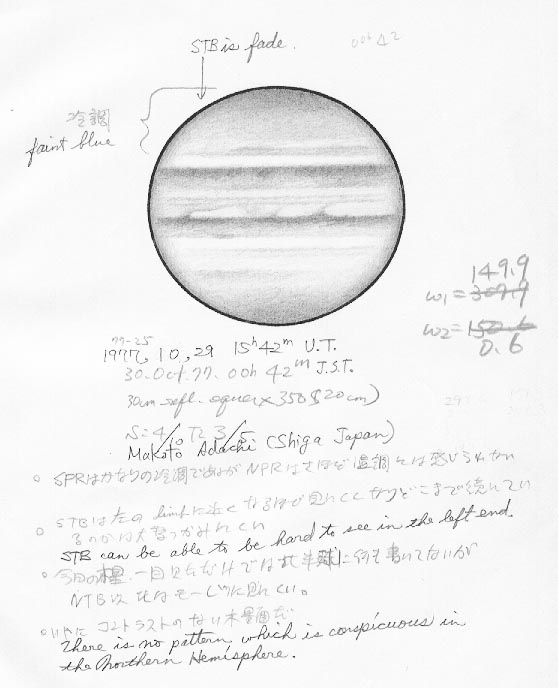 STB is fade.
00h 42
冷調
faint blue
149.9
ω1 = 307.9
ω2 = 152.6
0.6
77-25
1977, 10, 29 15h 42m U.T.
30. Oct. 77. 00h 42m J.S.T.
30cm refl. ×350 (20cm)
S=4/10 T=3/5
Makoto Adachi (Shiga Japan)
SPRはかなりの冷調であるが NPRはさほど温調とは感じられない
STBは左の limbに近くなるほど見にくくなりどこまで続いてい
るのかは
STB can be able to be hard to see in the left end.
今日の木星 一目見ただけでは北半球に何も書いてないが
NTB以北は 見にくい。
コントラストのない木星面だ
There is no pattern which is conspicuous in
the Northern Hemisphere.